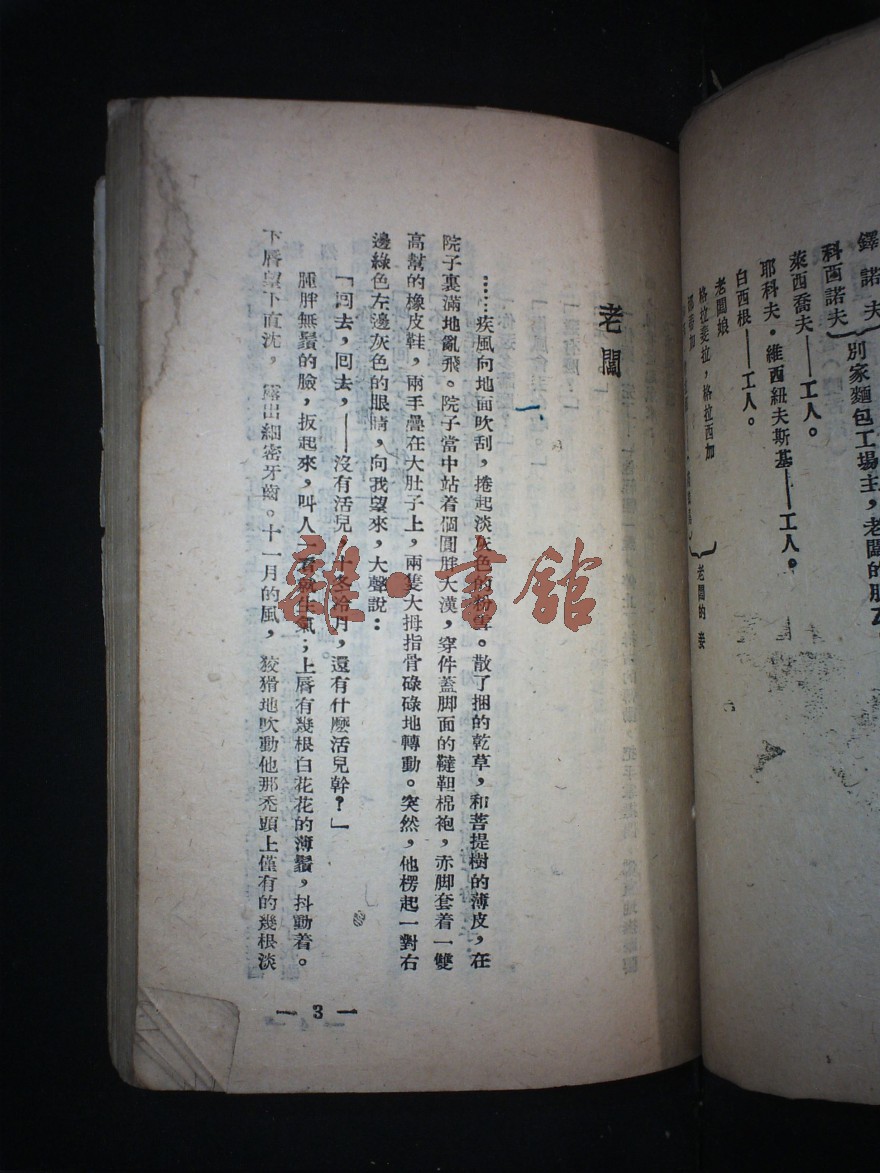 鐸諾夫
科茵諾夫
別家麵包工場主，老闆的朋友。
萊西喬夫——工人。
耶科夫·維西紐夫斯基——工人。
白西根——工人。
老闆娘
格拉斐拉，格拉西加
老闆的妾
老闆
一、
……疾風向地面吹刮，捲起淡灰色的粉雪。散了捆的乾草，和菩提樹的薄皮，在
院子裏滿地亂飛。院子當中站着個圓胖大漢，穿件蓋脚面的韃靼棉袍，赤脚套着一雙
高幫的橡皮鞋，兩手疊在大肚子上，兩隻大拇指骨碌碌地轉動。突然，他楞起一對右
邊綠色左邊灰色的眼睛，向我望來，大聲說：
「回去，回去，——沒有活兒，十冬冷月，還有什麼活兒幹？」
腫胖無鬚的臉，扳起來，叫人一看就生氣；上唇有幾根白花花的薄鬚，抖動着。
下唇望下直沈，露出細密牙齒。十一月的風，狡猾地吹動他那禿頭上僅有的幾根淡
— 3 —
雜·書館